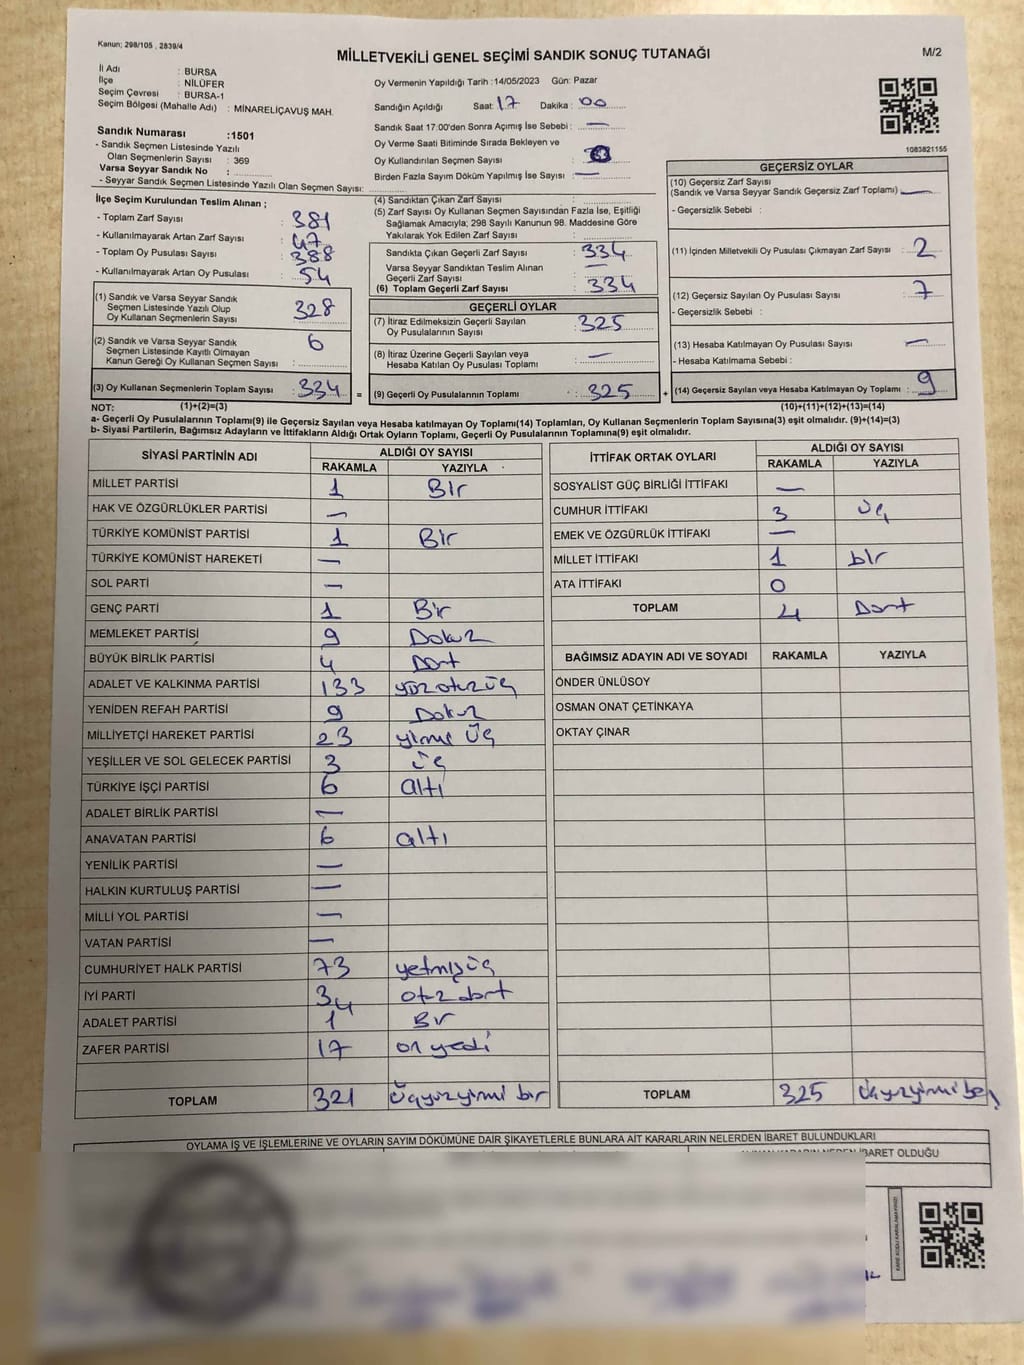 Kanun; 298/105 , 2839/4
MİLLETVEKİLİ GENEL SEÇİMİ SANDIK SONUÇ TUTANAĞI
M/2
İl Adı : BURSA
İlçe : NİLÜFER
Seçim Çevresi : BURSA-1
Seçim Bölgesi (Mahalle Adı) : MİNARELİÇAVUŞ MAH.
Sandık Numarası :1501
- Sandık Seçmen Listesinde Yazılı
Olan Seçmenlerin Sayısı : 369
Varsa Seyyar Sandık No :
- Seyyar Sandık Seçmen Listesinde Yazılı Olan Seçmen Sayısı:
Oy Vermenin Yapıldığı Tarih :14/05/2023 Gün: Pazar
Sandığın Açıldığı Saat: 17 Dakika : 00
Sandık Saat 17:00'den Sonra Açımış İse Sebebi : —
Oy Verme Saati Bitiminde Sırada Bekleyen ve
Oy Kullandırılan Seçmen Sayısı :
Birden Fazla Sayım Döküm Yapılmış İse Sayısı : —
1083821155
İlçe Seçim Kurulundan Teslim Alınan ;
- Toplam Zarf Sayısı : 381
- Kullanılmayarak Artan Zarf Sayısı : 47
- Toplam Oy Pusulası Sayısı : 388
- Kullanılmayarak Artan Oy Pusulası : 54
(1) Sandık ve Varsa Seyyar Sandık
Seçmen Listesinde Yazılı Olup
Oy Kullanan Seçmenlerin Sayısı : 328
(2) Sandık ve Varsa Seyyar Sandık
Seçmen Listesinde Kayıtlı Olmayan
Kanun Gereği Oy Kullanan Seçmen Sayısı : 6
(3) Oy Kullanan Seçmenlerin Toplam Sayısı : 334 =
(1)+(2)=(3)
(4) Sandıktan Çıkan Zarf Sayısı :
(5) Zarf Sayısı Oy Kullanan Seçmen Sayısından Fazla İse, Eşitliği
Sağlamak Amacıyla; 298 Sayılı Kanunun 98. Maddesine Göre
Yakılarak Yok Edilen Zarf Sayısı :
Sandıkta Çıkan Geçerli Zarf Sayısı : 334
Varsa Seyyar Sandıktan Teslim Alınan
Geçerli Zarf Sayısı : —
(6) Toplam Geçerli Zarf Sayısı : 334
GEÇERLİ OYLAR
(7) İtiraz Edilmeksizin Geçerli Sayılan
Oy Pusulalarının Sayısı : 325
(8) İtiraz Üzerine Geçerli Sayılan veya
Hesaba Katılan Oy Pusulası Toplamı : —
(9) Geçerli Oy Pusulalarının Toplamı : 325 +
GEÇERSİZ OYLAR
(10) Geçersiz Zarf Sayısı
(Sandık ve Varsa Seyyar Sandık Geçersiz Zarf Toplamı) : —
- Geçersizlik Sebebi :
(11) İçinden Milletvekili Oy Pusulası Çıkmayan Zarf Sayısı : 2
(12) Geçersiz Sayılan Oy Pusulası Sayısı : 7
- Geçersizlik Sebebi :
(13) Hesaba Katılmayan Oy Pusulası Sayısı : —
- Hesaba Katılmama Sebebi :
(14) Geçersiz Sayılan veya Hesaba Katılmayan Oy Toplamı : 9
(10)+(11)+(12)+(13)=(14)
NOT:
a- Geçerli Oy Pusulalarının Toplamı(9) ile Geçersiz Sayılan veya Hesaba katılmayan Oy Toplamı(14) Toplamları, Oy Kullanan Seçmenlerin Toplam Sayısına(3) eşit olmalıdır. (9)+(14)=(3)
b- Siyasi Partilerin, Bağımsız Adayların ve İttifakların Aldığı Ortak Oyların Toplamı, Geçerli Oy Pusulalarının Toplamına(9) eşit olmalıdır.
SİYASİ PARTİNİN ADI ALDIĞI OY SAYISI
RAKAMLA YAZIYLA
MİLLET PARTİSİ 1 Bir
HAK VE ÖZGÜRLÜKLER PARTİSİ —
TÜRKİYE KOMÜNİST PARTİSİ 1 Bir
TÜRKİYE KOMÜNİST HAREKETİ —
SOL PARTİ —
GENÇ PARTİ 1 Bir
MEMLEKET PARTİSİ 9 Dokuz
BÜYÜK BİRLİK PARTİSİ 4 Dört
ADALET VE KALKINMA PARTİSİ 133 yüzotuzüç
YENİDEN REFAH PARTİSİ 9 Dokuz
MİLLİYETÇİ HAREKET PARTİSİ 23 yirmi üç
YEŞİLLER VE SOL GELECEK PARTİSİ 3 üç
TÜRKİYE İŞÇİ PARTİSİ 6 altı
ADALET BİRLİK PARTİSİ —
ANAVATAN PARTİSİ 6 altı
YENİLİK PARTİSİ —
HALKIN KURTULUŞ PARTİSİ —
MİLLİ YOL PARTİSİ —
VATAN PARTİSİ —
CUMHURİYET HALK PARTİSİ 73 yetmişüç
İYİ PARTİ 34 otuz dört
ADALET PARTİSİ 1 Bir
ZAFER PARTİSİ 17 on yedi
TOPLAM 321 üçyüzyirmi bir
İTTİFAK ORTAK OYLARI ALDIĞI OY SAYISI
RAKAMLA YAZIYLA
SOSYALİST GÜÇ BİRLİĞİ İTTİFAKI —
CUMHUR İTTİFAKI 3 üç
EMEK VE ÖZGÜRLÜK İTTİFAKI —
MİLLET İTTİFAKI 1 bir
ATA İTTİFAKI 0
TOPLAM 4 Dört
BAĞIMSIZ ADAYIN ADI VE SOYADI RAKAMLA YAZIYLA
ÖNDER ÜNLÜSOY
OSMAN ONAT ÇETİNKAYA
OKTAY ÇINAR
TOPLAM 325 üçyüzyirmi beş
OYLAMA İŞ VE İŞLEMLERİNE VE OYLARIN SAYIM DÖKÜMÜNE DAİR ŞİKAYETLERLE BUNLARA AİT KARARLARIN NELERDEN İBARET BULUNDUKLARI
İBARET OLDUĞU